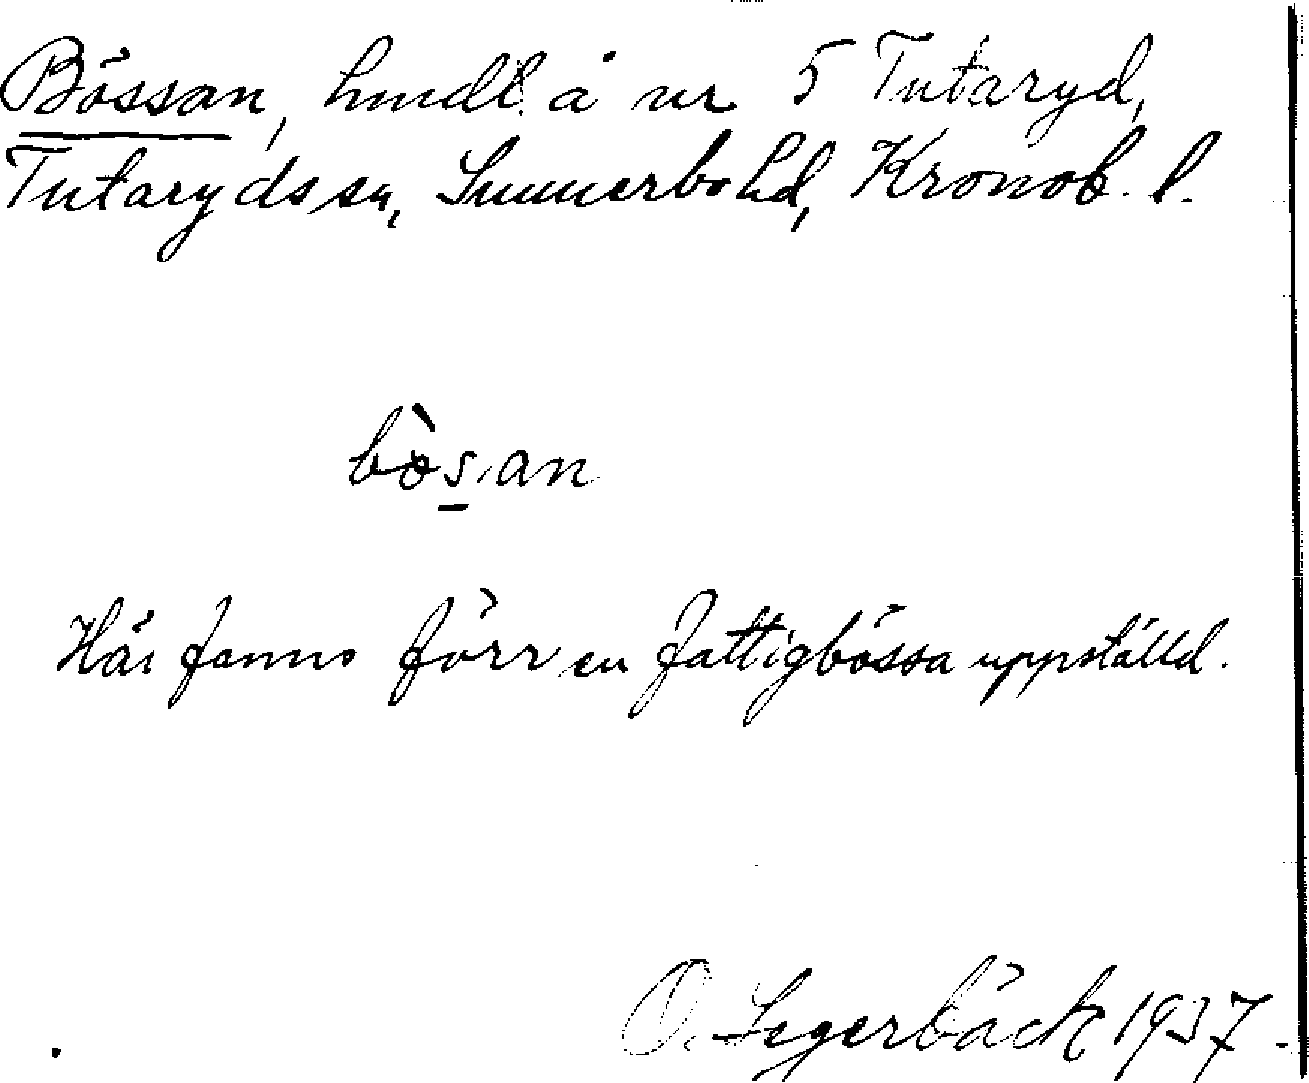 Bössan, hmdl. å nr 5 Tutaryd,
Tutaryds sn, Sunnerbo hd, Kronob. l.
bòs͟,an
Här fanns förr en fattigbössa uppställd.
O. Segerbäck 1937.